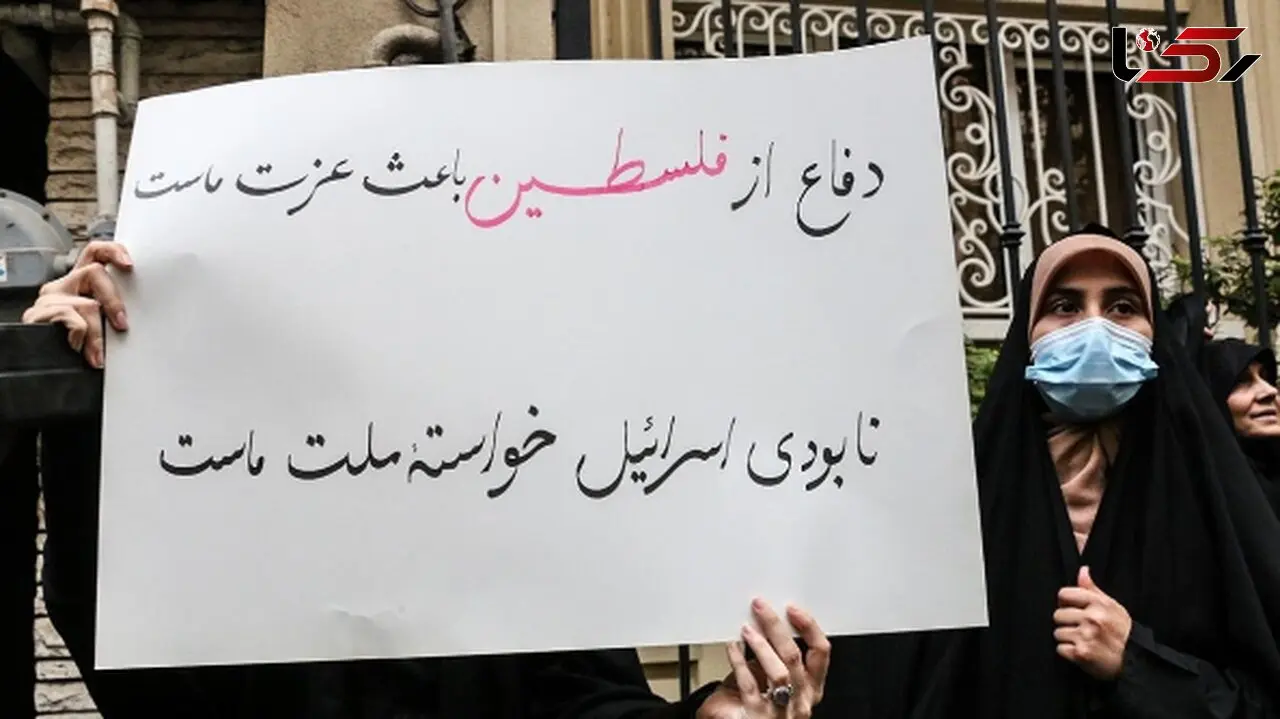 رکنا
دفاع از فلسطین باعث عزت ماست
نابودی اسرائیل خواستهٔ ملت ماست